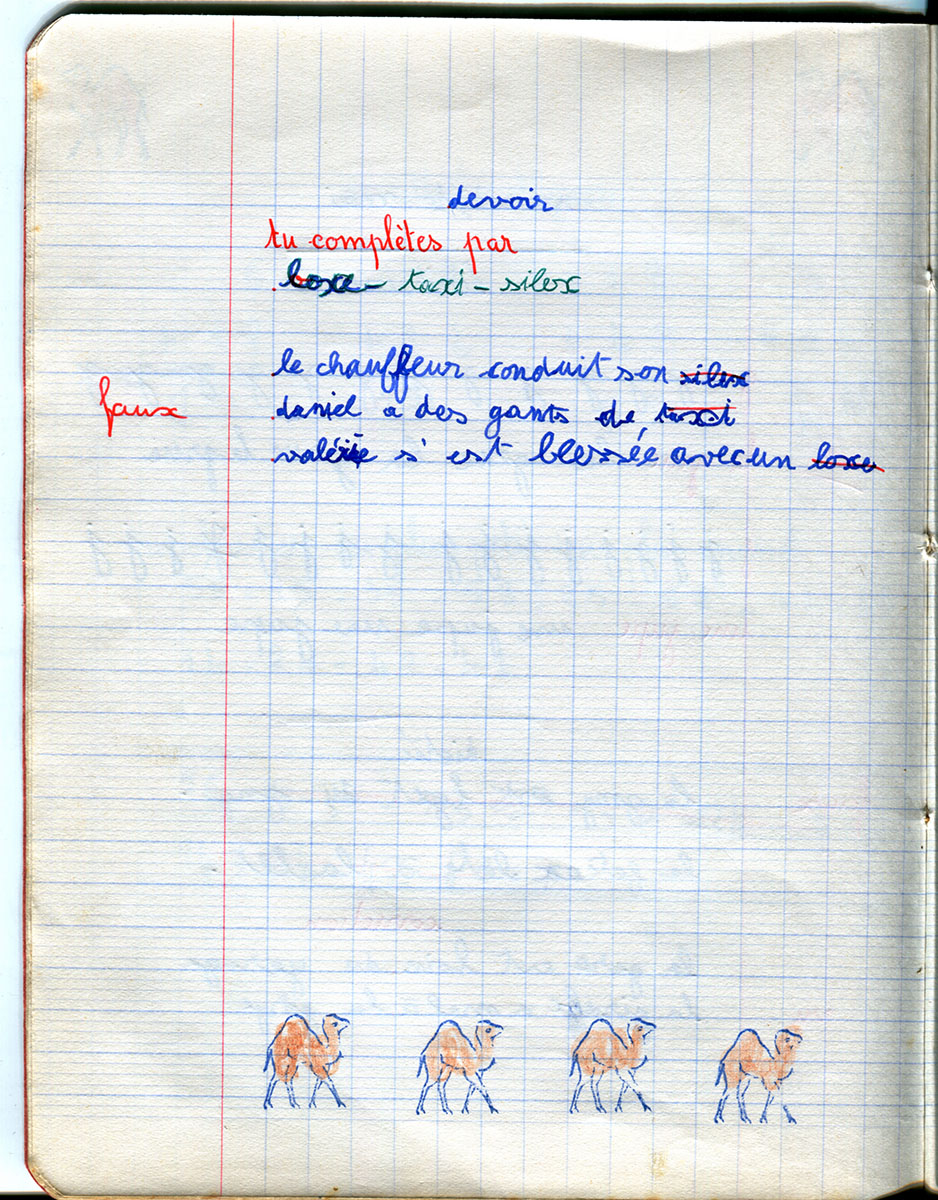 devoir
tu complètes par
boxe - taxi - silex
le chauffeur conduit son silex
faux
daniel a des gants de taxi
valérie s'est blessée avec un boxe